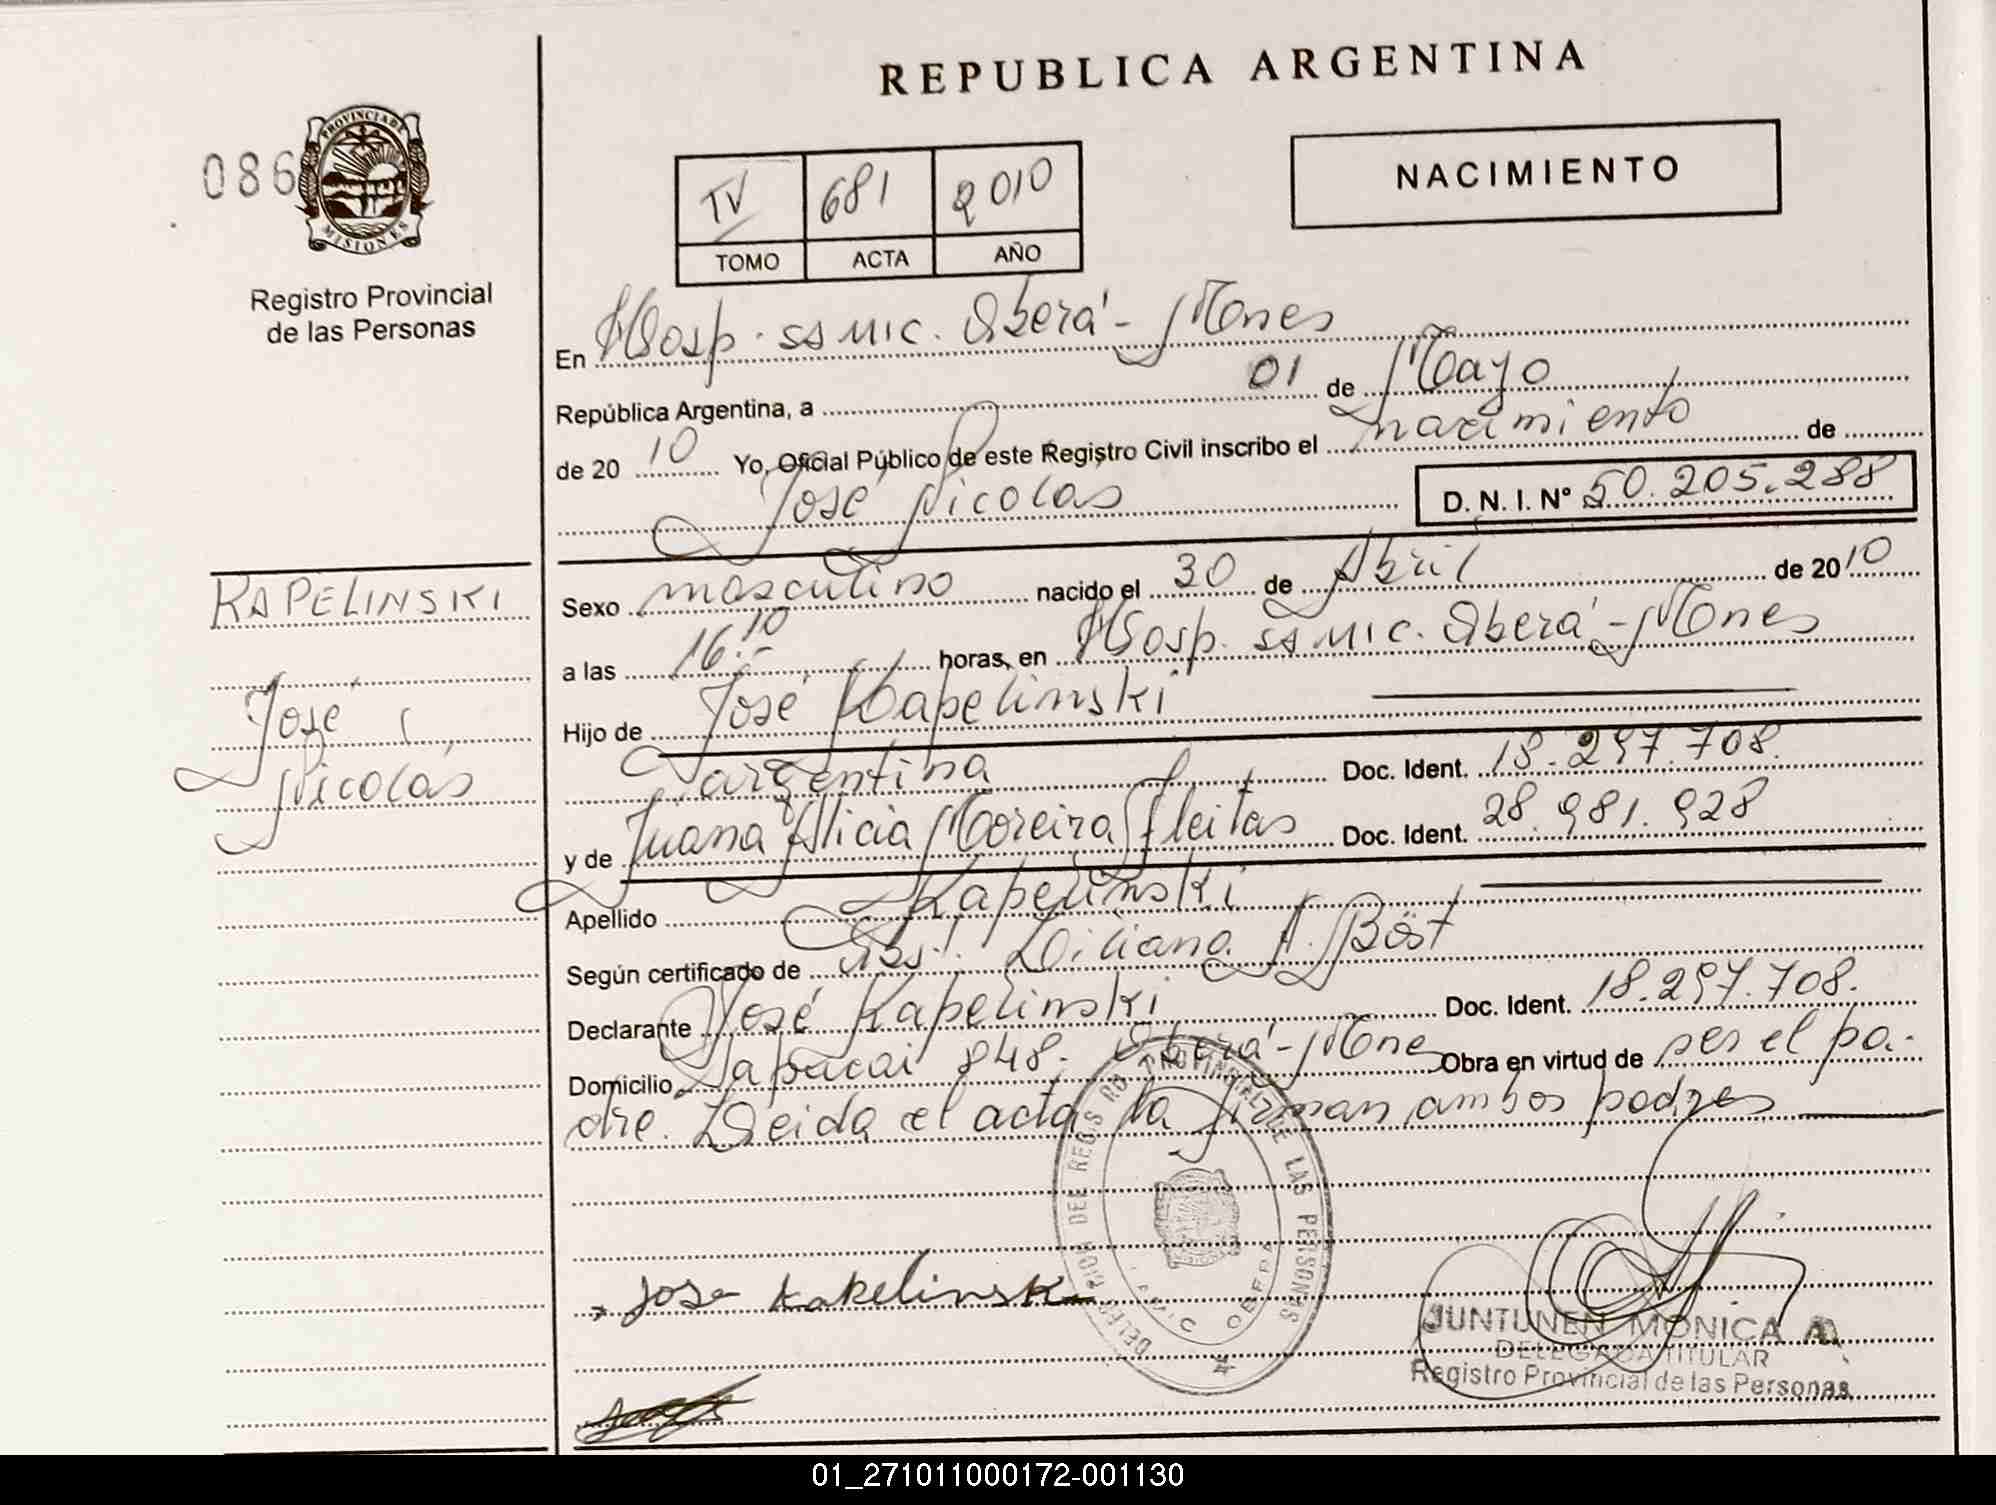 REPUBLICA ARGENTINA
086
PROVINCIA DE
MISIONES
Registro Provincial
de las Personas
TV 681 2010
TOMO ACTA AÑO
NACIMIENTO
En Hosp. SAMIC. Oberá - Mones
República Argentina, a 01 de Mayo
de 20 10 Yo, Oficial Público de este Registro Civil inscribo el nacimiento de
José Nicolas D. N. I. Nº 50.205.288
KAPELINSKI
José
Nicolás
Sexo masculino nacido el 30 de Abril de 2010
a las 16.10 horas, en Hosp. SAMIC. Oberá - Mones
Hijo de José Kapelinski
argentina Doc. Ident. 18.297.708.
y de Juana Alicia Moreira Fleitas Doc. Ident. 28.981.928
Apellido Kapelinski
Según certificado de Obst. Liliana A. Böst
Declarante José Kapelinski Doc. Ident. 18.297.708.
Domicilio 848. Oberá - Mone Obra en virtud de ser el pa-
dre. Leida el acta la firman ambos padres
DELEGACION DEL REGISTRO PROVINCIAL DE LAS PERSONAS
OBERA
Jose Kapelinski
JUNTUNEN MONICA A.
DELEGADA TITULAR
Registro Provincial de las Personas
01_271011000172-001130